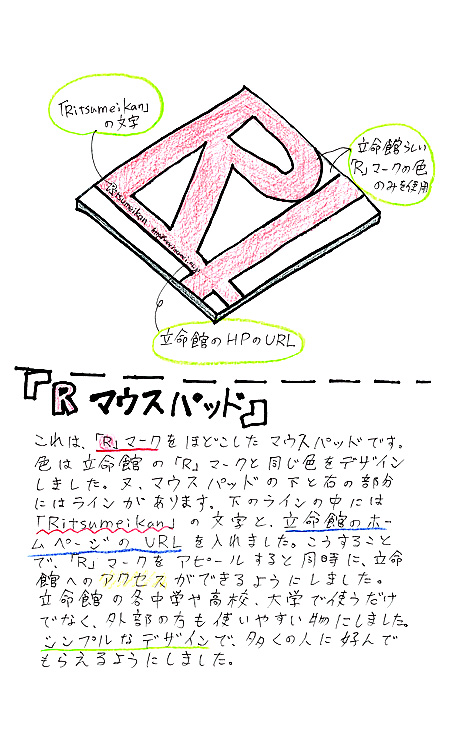 「Ritsumeikan」
の文字
立命館らしい
「R」マークの色
のみを使用
Ritsumeikan
立命館のHPのURL
『Rマウスパッド』
これは、「R」マークをほどこしたマウスパッドです。
色は立命館の「R」マークと同じ色をデザイン
しました。又、マウスパッドの下と右の部分
にはラインがあります。下のラインの中には
「Ritsumeikan」の文字と、立命館のホー
ムページのURLを入れました。こうすること
で、「R」マークをアピールすると同時に、立命
館へのアクセスができるようにしました。
立命館の各中学や高校、大学で使うだけ
でなく、外部の方も使いやすい物にしました。
シンプルなデザインで、多くの人に好んで
もらえるようにしました。